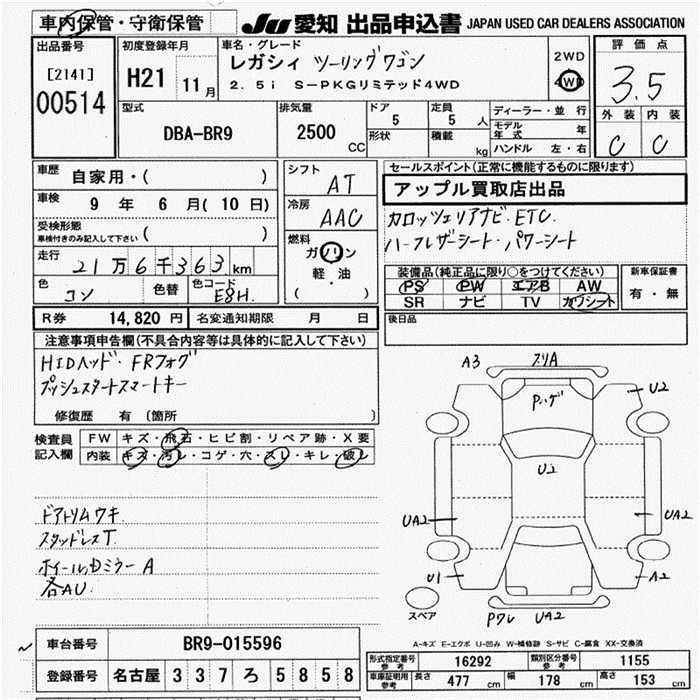 車内保管・守衛保管
JU 愛知 出品申込書 JAPAN USED CAR DEALERS ASSOCIATION
出品番号
[2141]
00514
初度登録年月
H21 11月
車名・グレード
レガシィ ツーリングワゴン
2.5i S-PKGリミテッド4WD
2WD
4WD
評価点
3.5
外装 内装
C C
型式
DBA-BR9
排気量
2500 CC
ドア 5
形状
定員 5 人
積載 kg
ディーラー・並行
モデル年式 年
ハンドル 左・右
車歴
自家用・( )
車検
9 年 6 月( 10 日)
受検形態
車検付きのみ記入して下さい ( )
走行
21万6千363km
色 コン 色替 色コード E8H
シフト AT
冷房 AAC
燃料
ガソリン
軽・油
( )
セールスポイント(正常に機能するものに限ります)
アップル買取店出品
カロッツェリアナビ・ETC.
ハーフレザーシート・パワーシート
装備品(純正品に限り○をつけてください)
PS PW エアB AW
SR ナビ TV カワシート
新車保証書
有・無
後日品
R券 14,820 円 名変通知期限 月 日
注意事項申告欄(不具合内容等は具体的に記入して下さい)
HIDヘッド・FRフォグ
プッシュスタートスマートキー
修復歴 有 〔箇所 〕
検査員記入欄
FW キズ・飛石・ヒビ割・リペア跡・X要
内装 キズ・汚レ・コゲ・穴・スレ・キレ・破レ
ドアトリムワキ
スタッドレスT
ホイールDミラーA
各AU.
A3 スリA
Pハゲ
U2
U2
UA2 UA2
U1 A2
スペア
Pワレ UA2
A-キズ E-エクボ U-凹み W-補修跡 S-サビ C-腐食 XX-交換済
車台番号 BR9-015596
登録番号 名古屋 337ろ5858
形式指定番号 参考 16292 類別区分番号 参考 1155
車庫証明用 参考 長さ 477 cm 幅 178 cm 高さ 153 cm